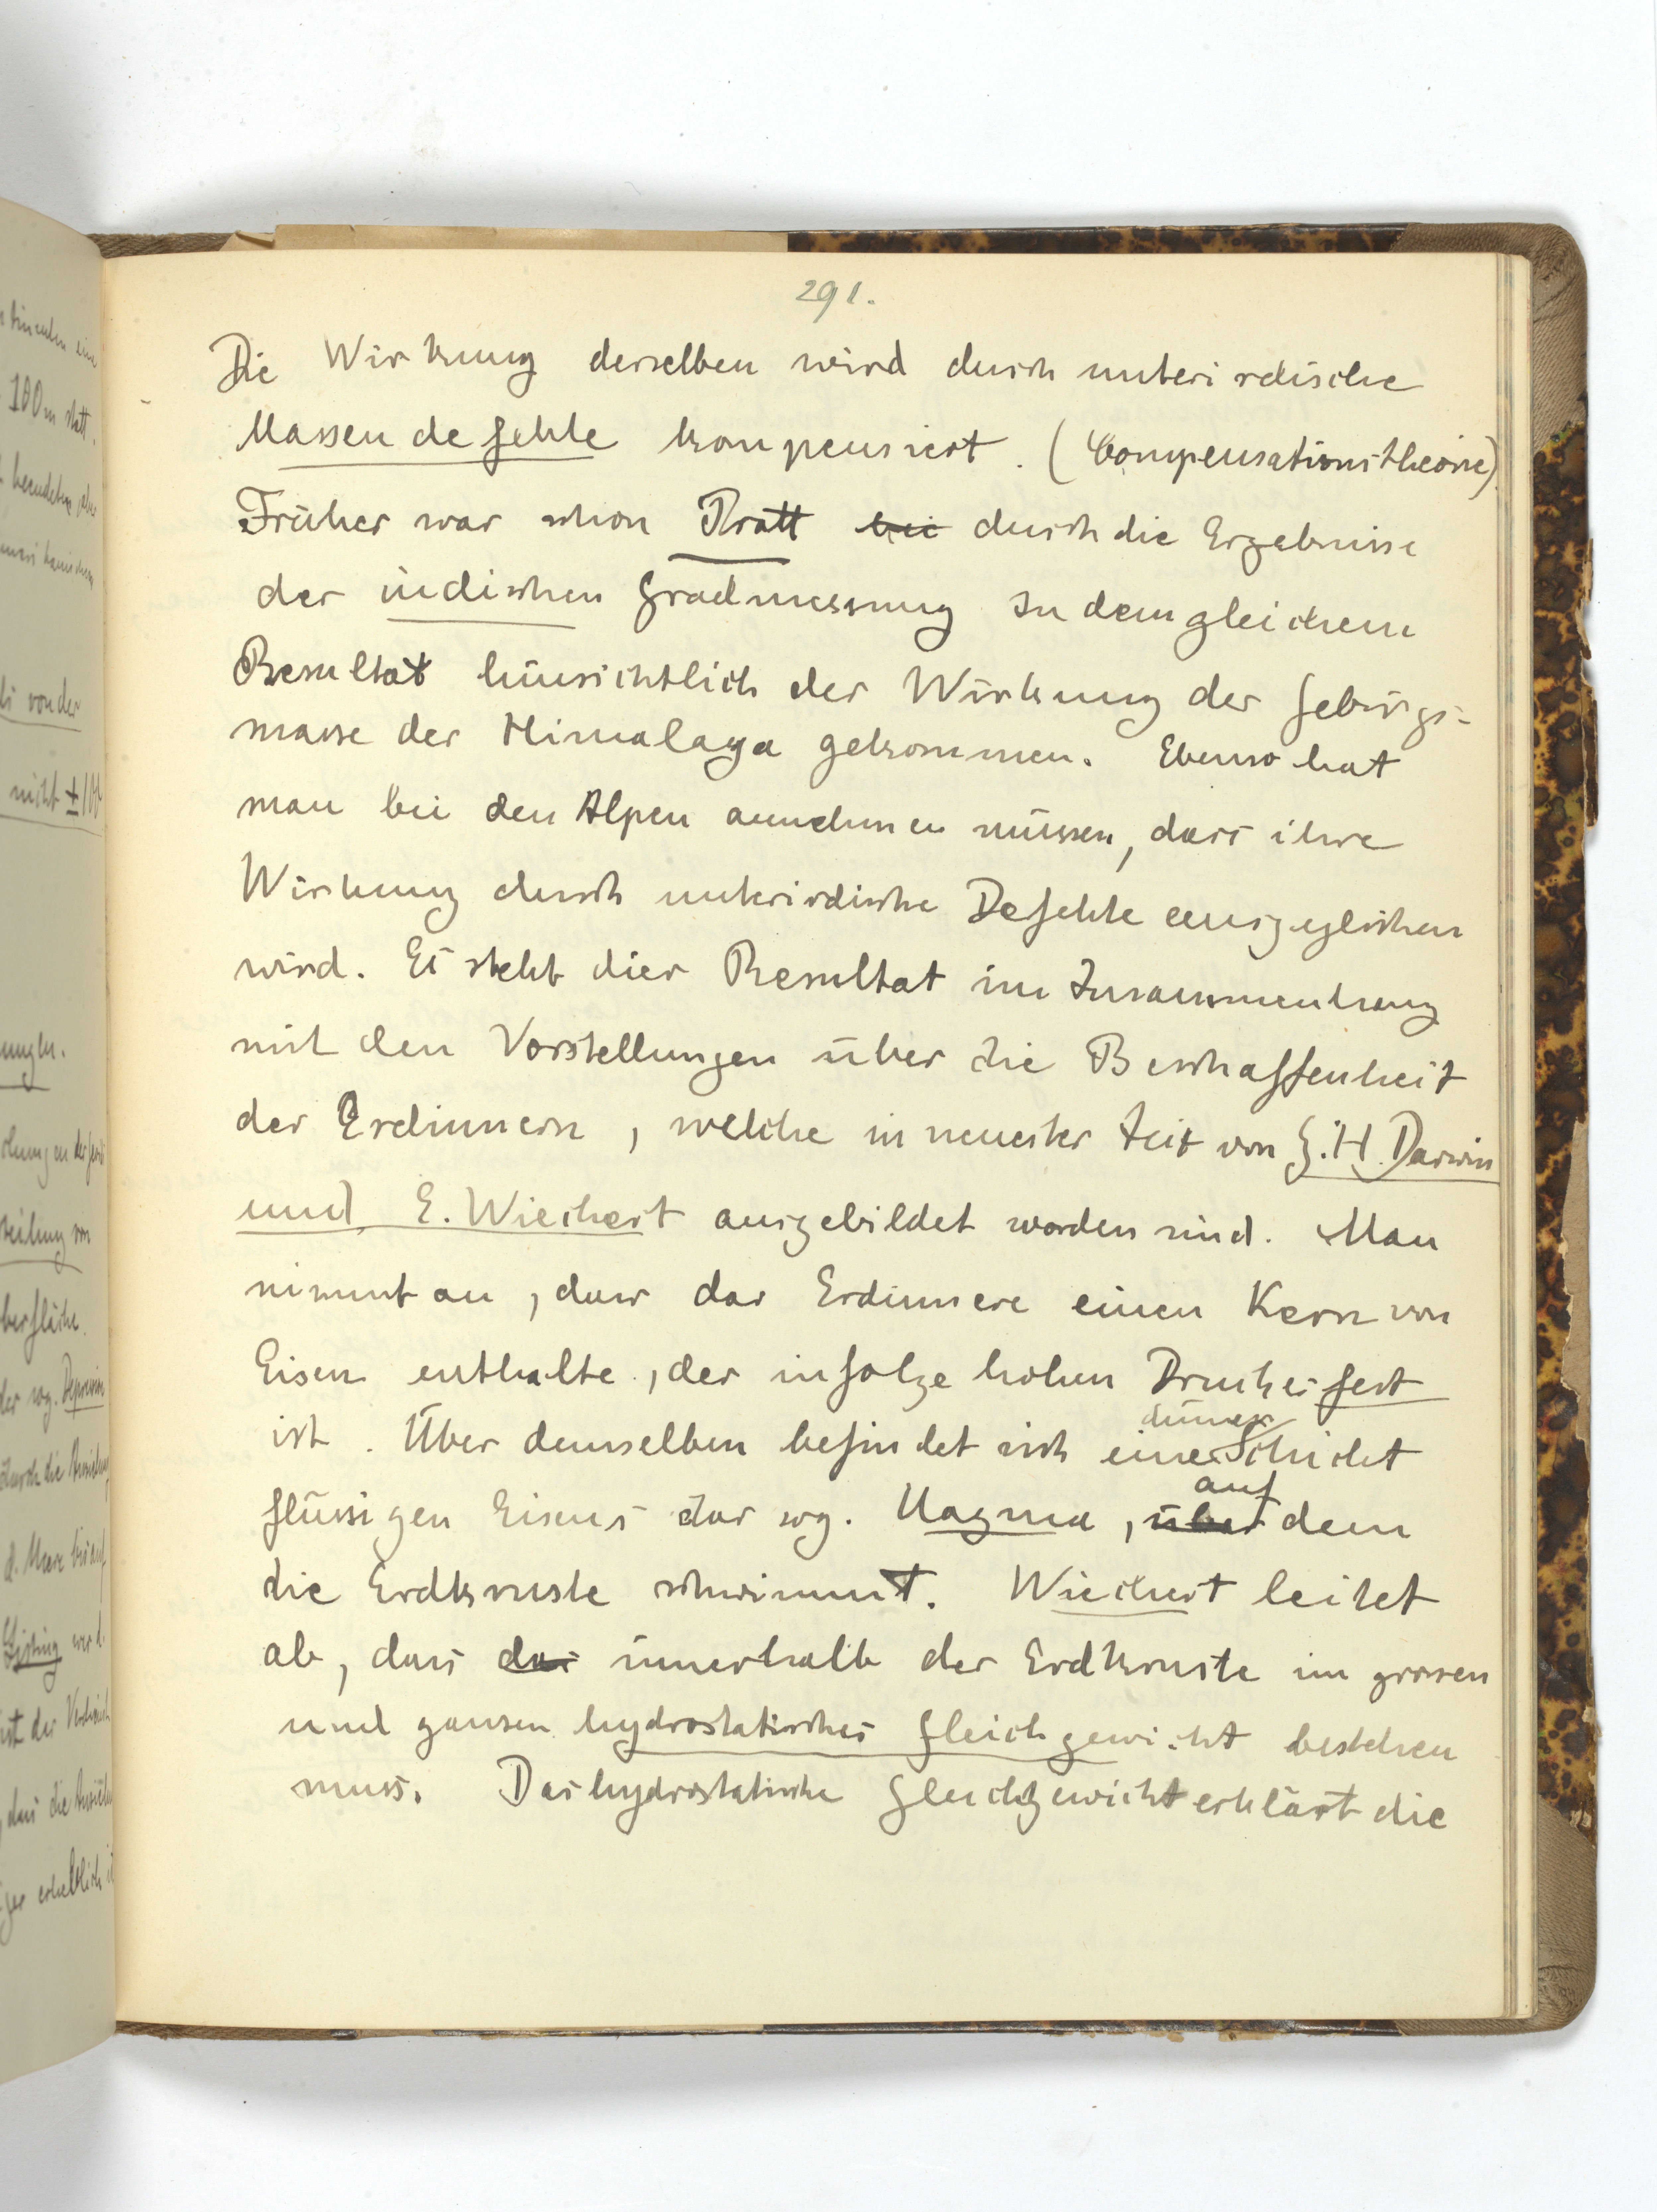 291.
Die Wirkung derselben wird durch unterirdische
Massendefekte kompensiert. (Compensationstheorie).
Früher war schon Pratt bei durch die Ergebnisse
der indischen Gradmessung zu dem gleichem
Resultat hinsichtlich der Wirkung der Gebirgs-
masse der Himalaya gekommen. Ebenso hat
man bei den Alpen annehmen müssen, dass ihre
Wirkung durch unterirdische Defekte ausgeglichen
wird. Es steht dies Resultat im Zusammenhang
mit den Vorstellungen über die Beschaffenheit
des Erdinnern, welche in neuester Zeit von G.H. Darwin
und E. Wiechert ausgebildet worden sind. Man
nimmt an, dass das Erdinnere einen Kern von
Eisen enthalte, der infolge hohen Druckes fest
ist. Über demselben befindet sich eine dünne Schicht
flüssigen Eisens das sog. Magma, über auf dem
die Erdkruste schwimmt. Wiechert leitet
ab, dass das innerhalb der Erdkruste im grossen
und ganzen hydrostatisches Gleichgewicht bestehen
muss. Das hydrostatische Gleichgewicht erklärt die
100 m statt.
ls von der
nicht ± 100
ungen.
teilung von
berfläche.
der sog. Depression
durch die Anziehung
d. Meer bis auf
Listing
dass die
ger erheblich